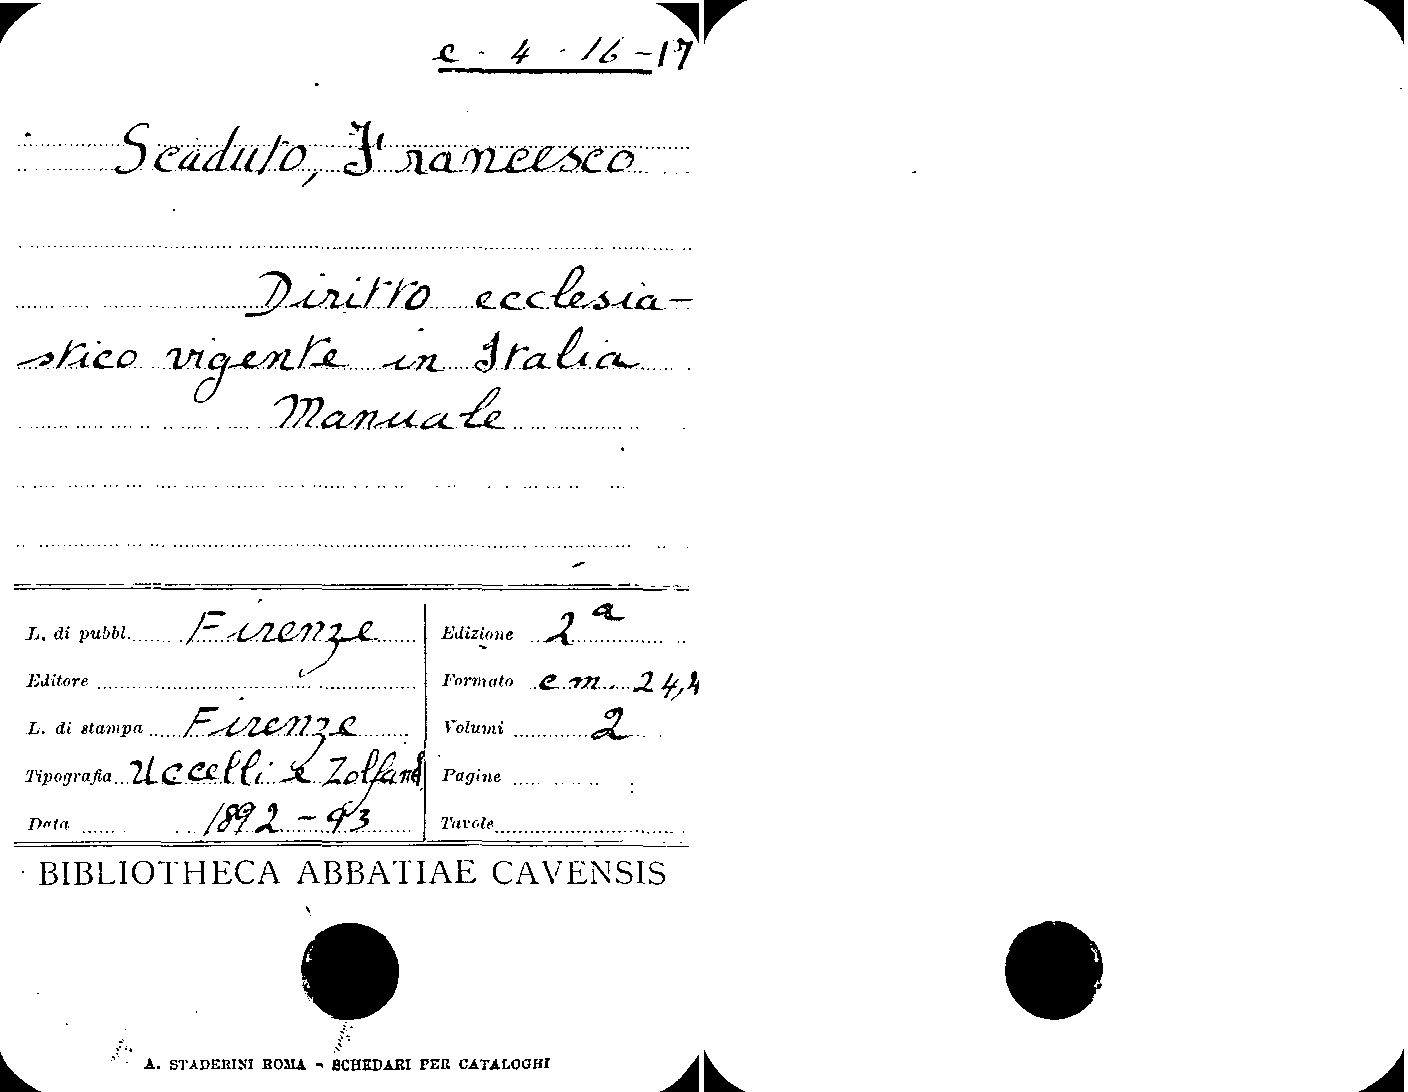 c - 4 - 16 - 17
Scaduto, Francesco
Diritto ecclesia-
stico vigente in Italia
Manuale
L. di pubbl. Firenze
Editore
L. di stampa Firenze
Tipografia Uccelli e Zolfand
Data 1892 - 93
Edizione 2ª
Formato cm. 24,4
Volumi 2
Pagine
Tavole
BIBLIOTHECA ABBATIAE CAVENSIS
A. STADERINI ROMA - SCHEDARI PER CATALOGHI